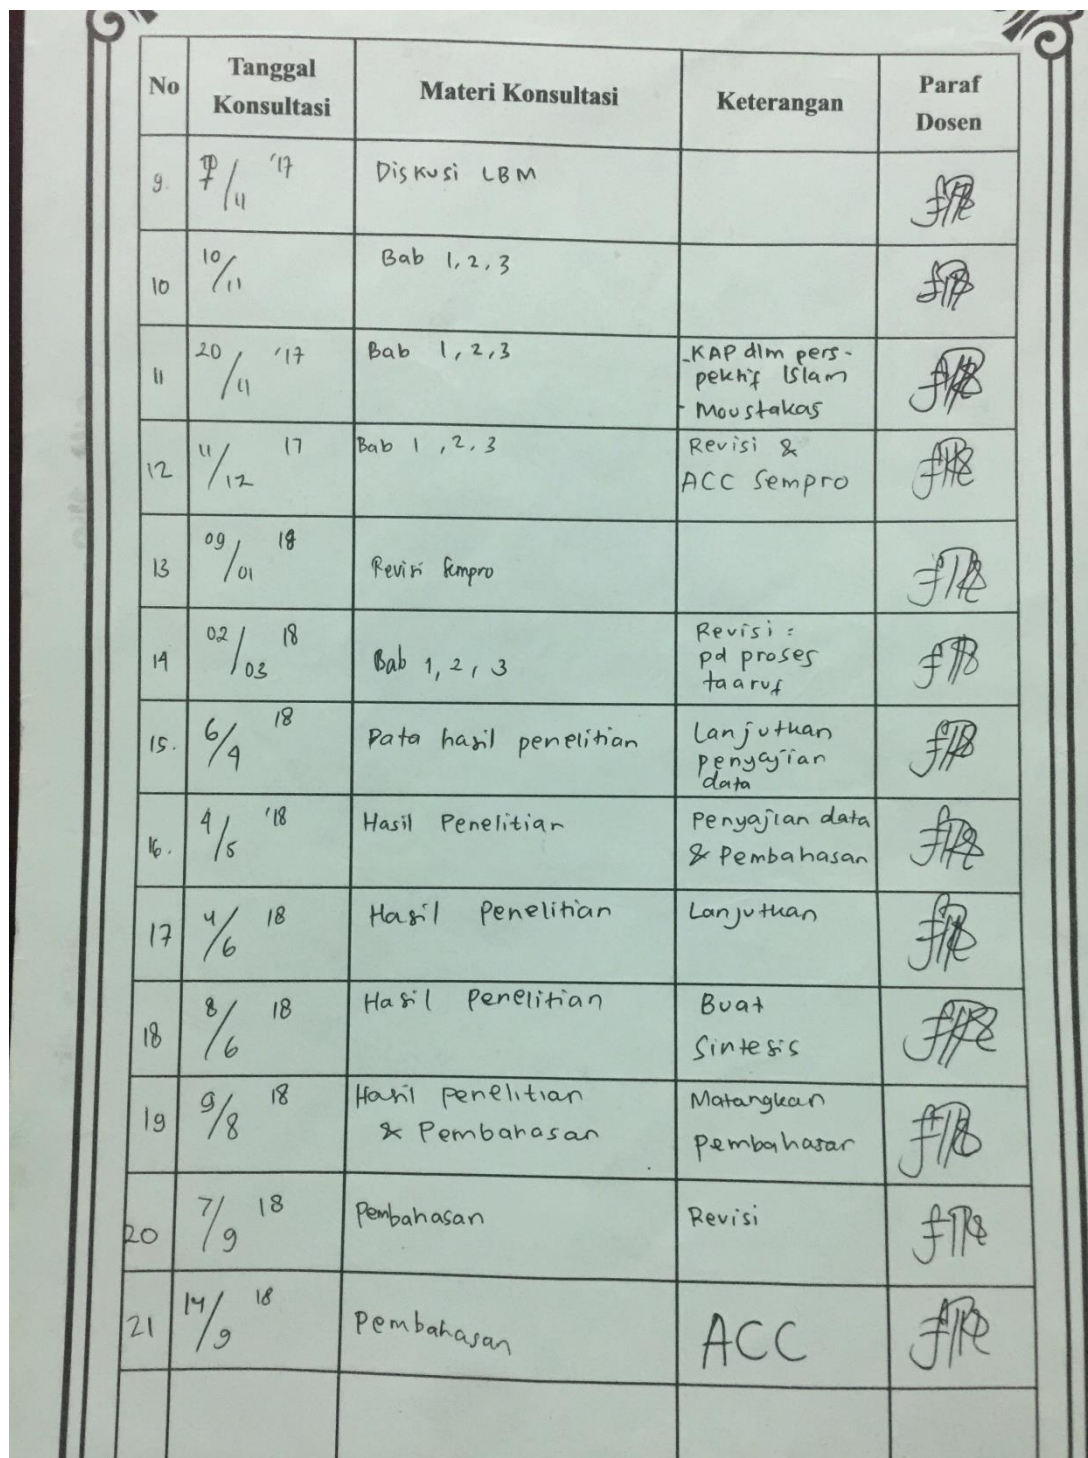 No Tanggal Konsultasi Materi Konsultasi Keterangan Paraf Dosen
9. /11 '17 Diskusi LBM
10 10/11 Bab 1, 2, 3
11 20/11 '17 Bab 1, 2, 3 -KAP dlm pers-
pektif Islam
- Moustakas
12 11/12 17 Bab 1, 2, 3 Revisi &
ACC Sempro
13 09/01 18 Revisi Sempro
14 02/03 18 Bab 1, 2, 3 Revisi :
pd proses
taaruf
15. 6/4 18 Data hasil penelitian Lanjutkan
penyajian
data
16. 4/5 '18 Hasil Penelitian Penyajian data
& Pembahasan
17 4/6 18 Hasil Penelitian Lanjutkan
18 8/6 18 Hasil Penelitian Buat
Sintesis
19 9/8 18 Hasil penelitian Matangkan
& Pembahasan pembahasan
20 7/9 18 Pembahasan Revisi
21 14/9 18 Pembahasan ACC